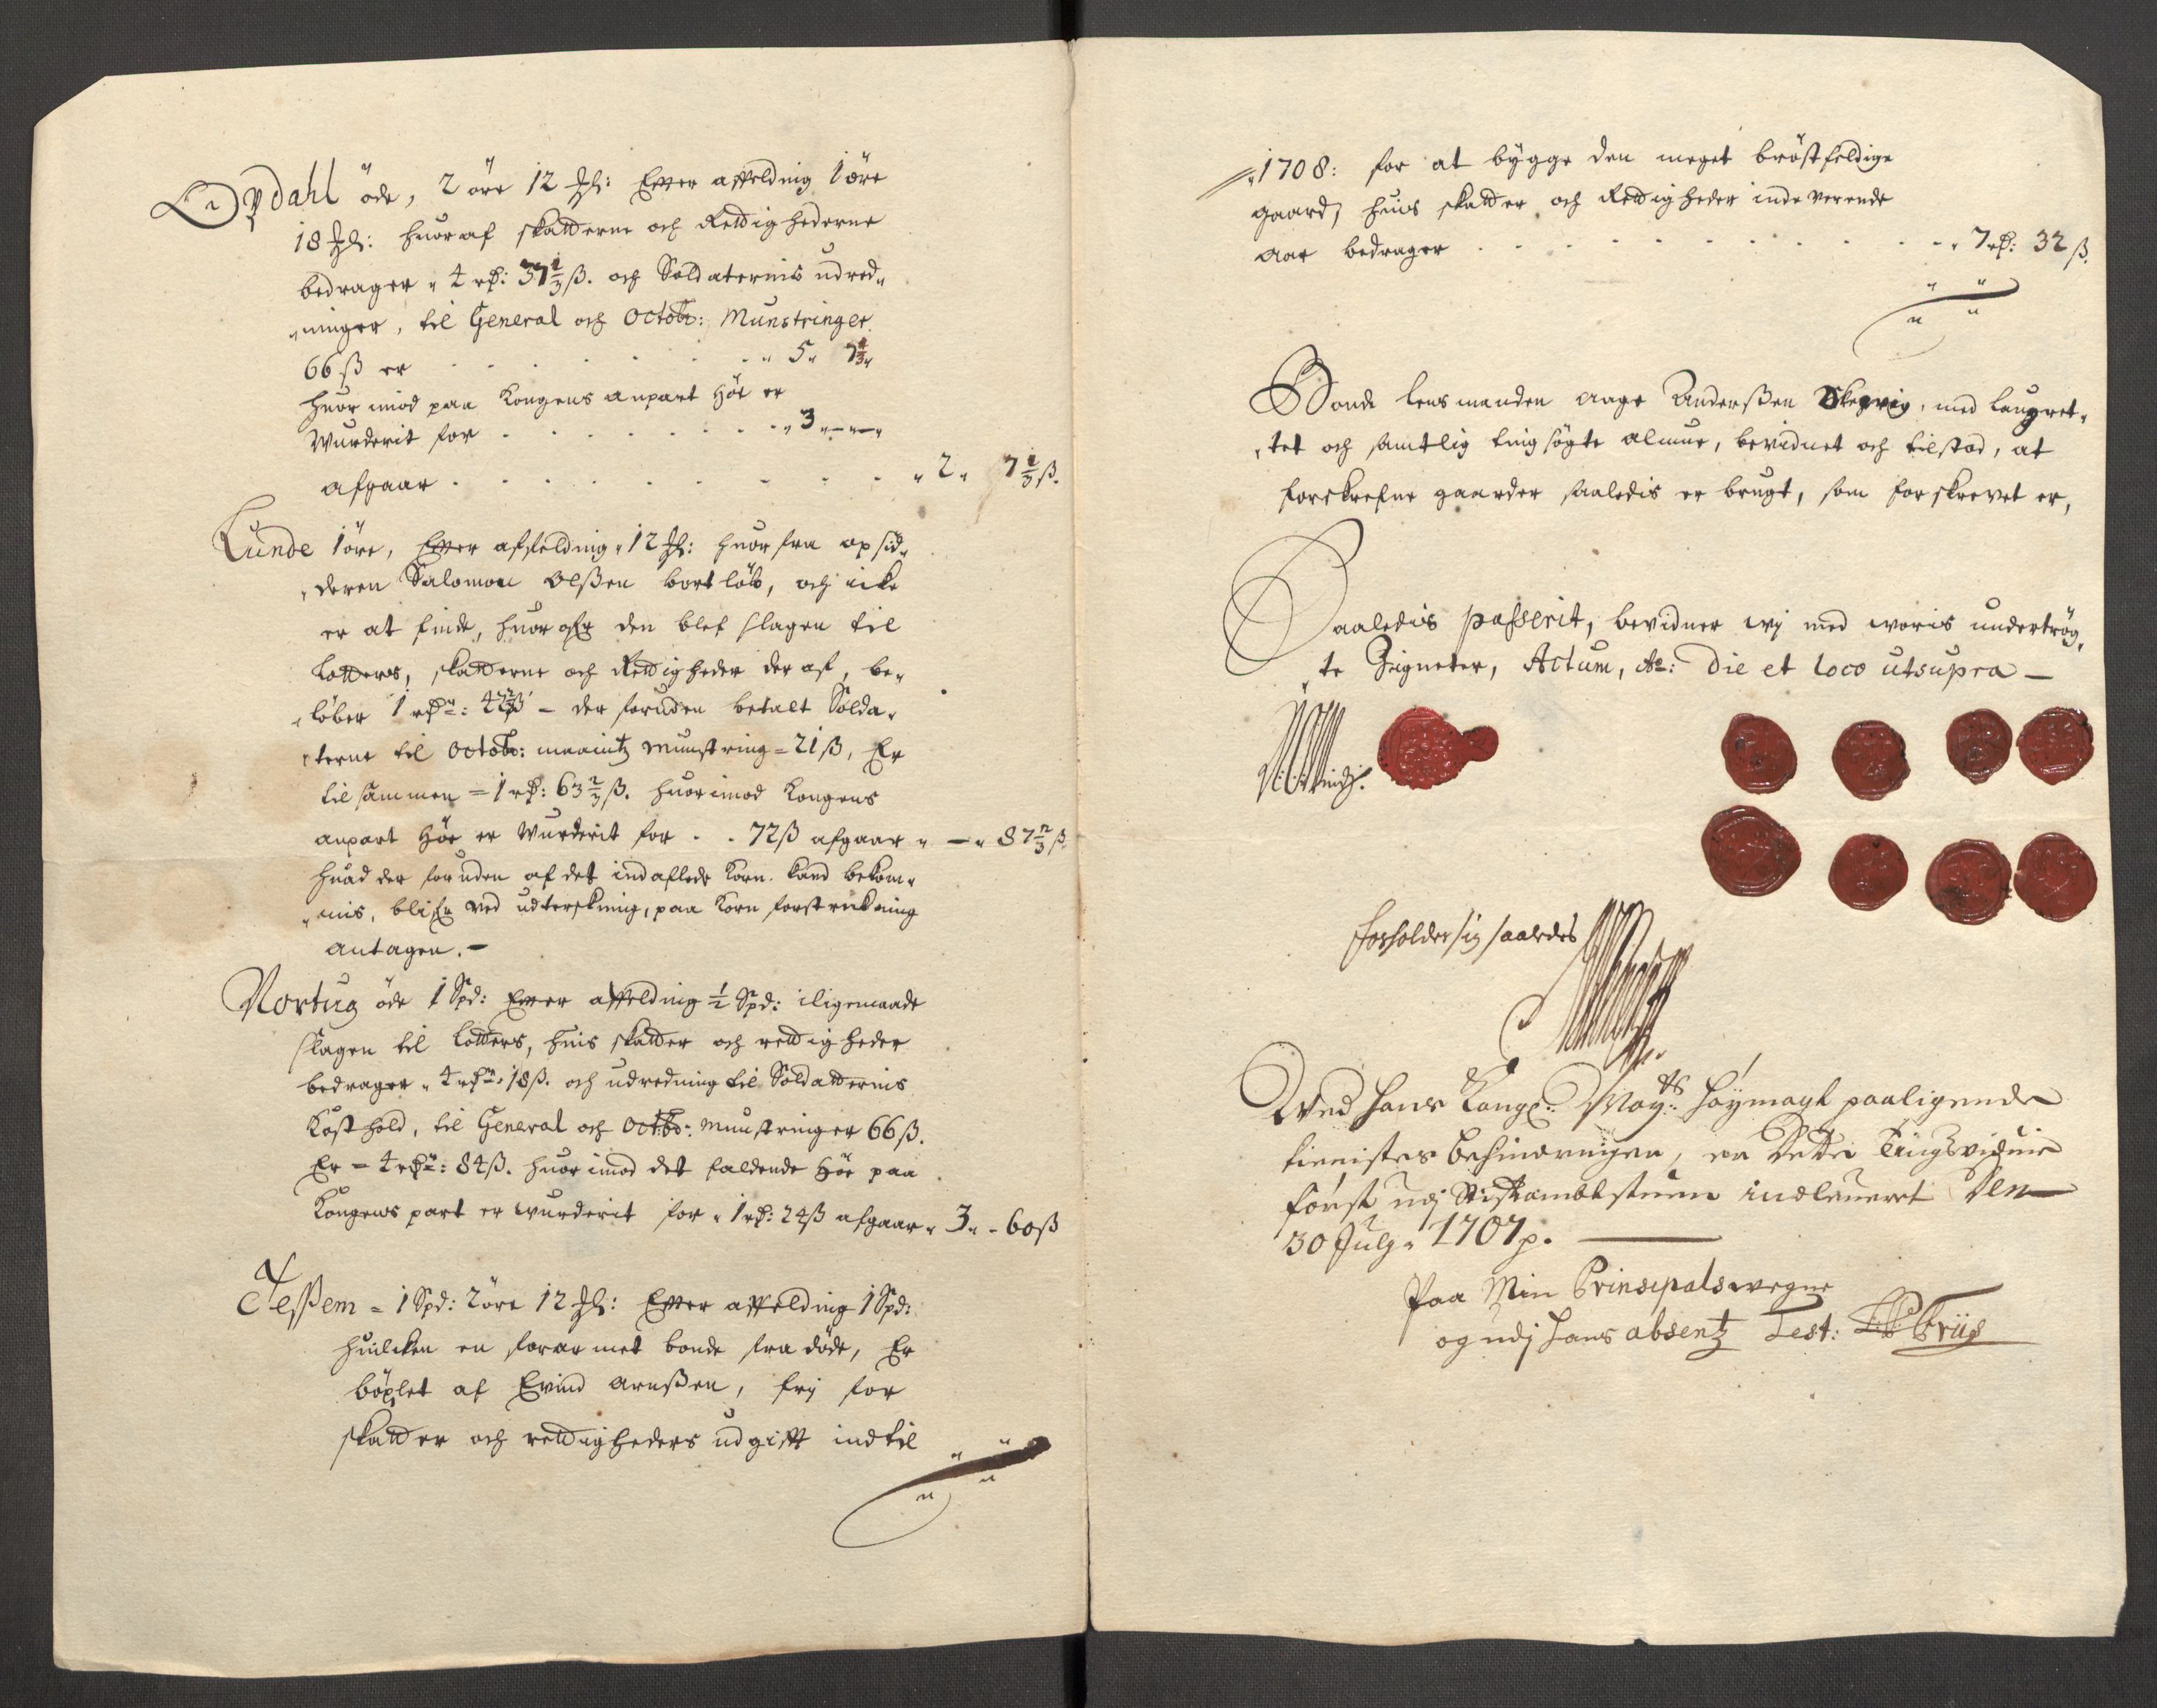 Opdahl öde, 2 öre 12 Mkl: Efter affelding 1 öre
18 Mkl: huoraf skatterne och Rettighederne
bedrager „ 4 rd: 37 1/3 ß. och Soldaternis udred„
„ninger, til General och Octobr: Munstringer
66 ß er . . . . . . . „ 5 „ 7 1/3 „
huorimod paa Kongens anpart Höe er
Wurderit for . . . . . . . „ 3 „ — „ — „
afgaar . . . . . . . . . „ 2 „ 7 1/3 ß.
Lunde 1 öre, Efter affelding „ 12 Mkl: huorfra opsid„
„deren Salomon Olßen bortlöb, och icke
er at finde, huorofr den blef slagen til
Lotters, skatterne och Rettigheder deraf, be„
„löber 1 rdr: 42 2/3 ß – der foruden betalt Solda„
„terne til Octobr: maaintz munstring = 21 ß, Er
tilsammen = 1 rd: 63 2/3 ß. huorimod Kongens
anpart Höe er Wurderit for . . 72 ß afgaar „ — „ 87 2/3 ß.
huad der foruden af det indaflede Korn kand bekom„
„mis, blifr ved udterskning, paa Korn forstrekning
antagen. –
Nortug öde 1 Spd: Efter affelding 1/2 Spd: iligemaade
slagen til Lotters, huis skatter och rettigheder
bedrager „ 4 rdr: 18 ß. och udredning til Soldatternis
Kosthold, til General och Octbr: munstringer 66 ß.
Er = 4 rdr: 84 ß. huorimod det faldende Höe paa
Kongens part er wurderit for „ 1 rd: 24 ß afgaar „ 3 „ - 60 ß
Teßem = 1 Spd: 2 öre 12 Mkl: Efter affelding 1 Spd:
huilcken en forarmet bonde fra döde, Er
böxlet af Evind Arnßen, frj for
skatter och rettigheders udgifft indtil
„1708: for at bygge den meget bröstfeldige
gaard, huis skatter och Rettigheder indeverende
aar bedrager . . . . . . . . . „ 7 rd: 32 ß.
Bonde lensmanden Aage Anderßen Skegvig, med laugret„
„tet och samtlig tingsögte almue, bevidnet och tilstod, at
forskrefne gaarder saaledis er brugt, som forskrevet er,
Saaledis passerit, bevidner wj med woris undertrög„
„te Zigneter, Actum, Ao: die et loco utsupra —
forholder sig saaledes
Wed Hans Kongl: May:ts höymagt paaligende
tienistes behindringer, er dette Tingsvidnie
först udj Stiftambtstuen indleveret den
30 July „ 1707 p.
Paa Min Prinsipals wegne
og udj hans absentz Test: Friis